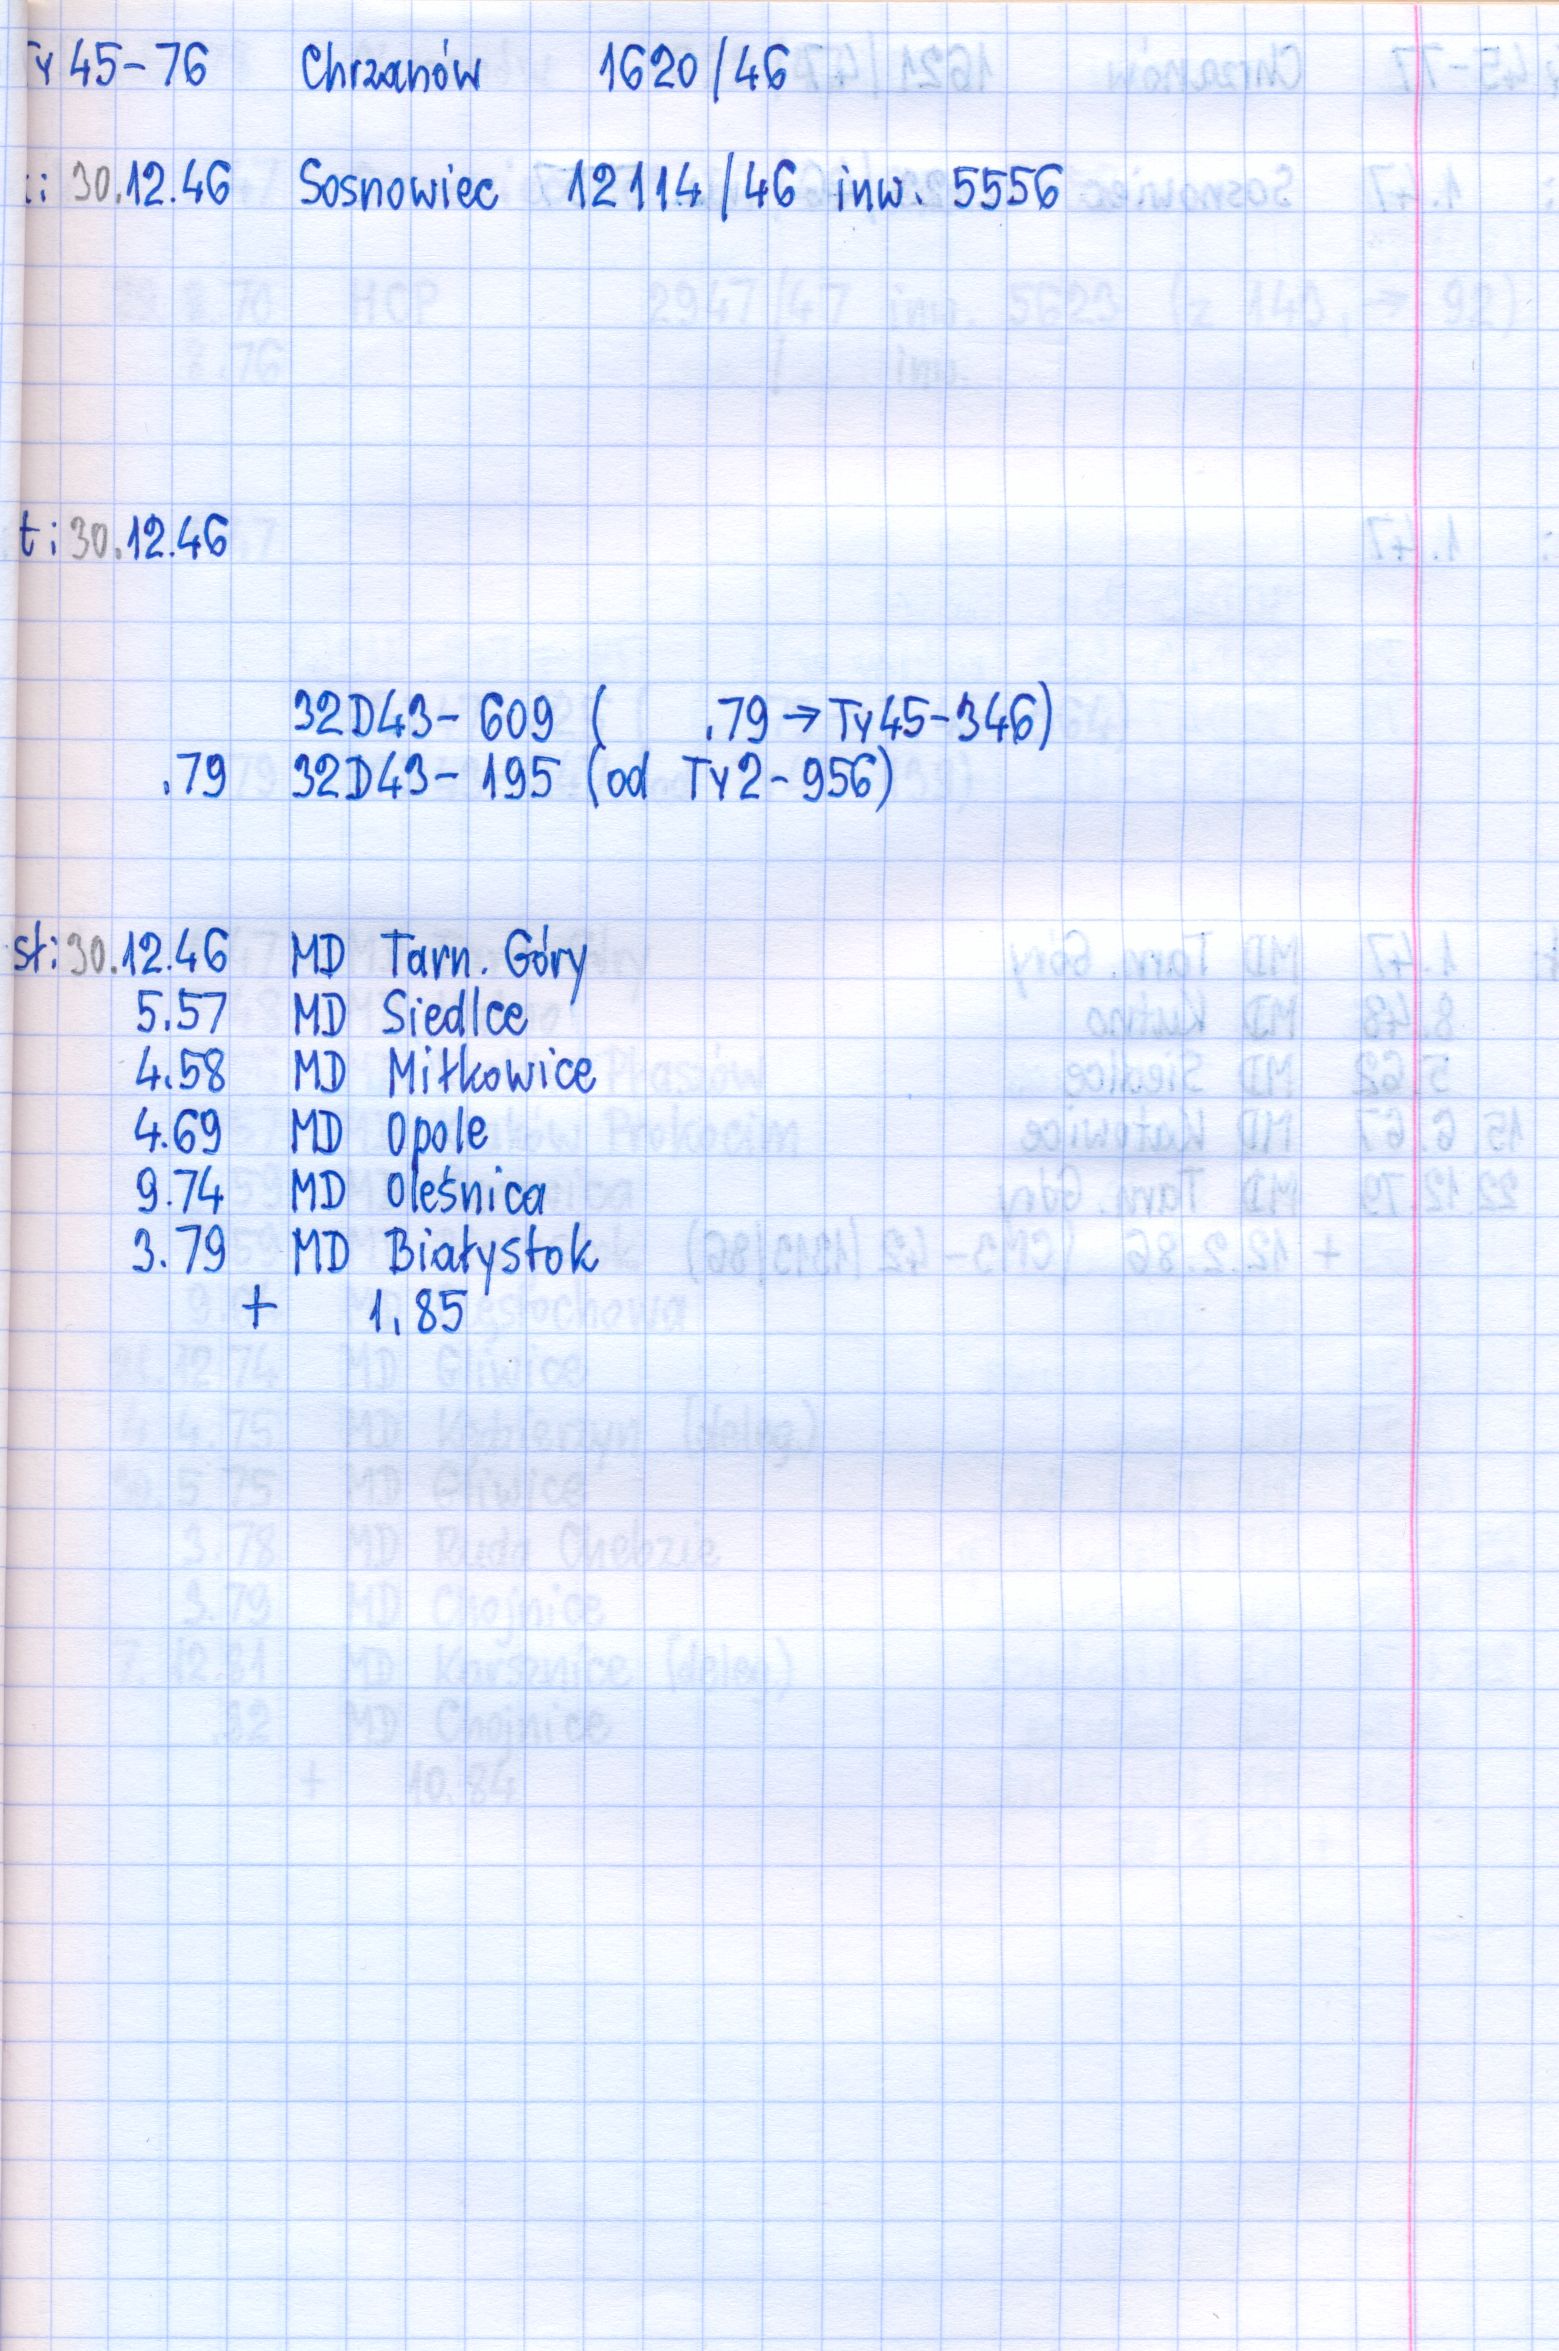 Ty45-76 Chrzanów 1620/46
t: 30.12.46 Sosnowiec 12114/46 inw. 5556
t: 30.12.46
32D43-609 ( .79 → Ty45-346)
.79 32D43-195 (od Ty2-956)
st: 30.12.46 MD Tarn. Góry
5.57 MD Siedlce
4.58 MD Miłkowice
4.69 MD Opole
9.74 MD Oleśnica
3.79 MD Białystok
+ 1.85